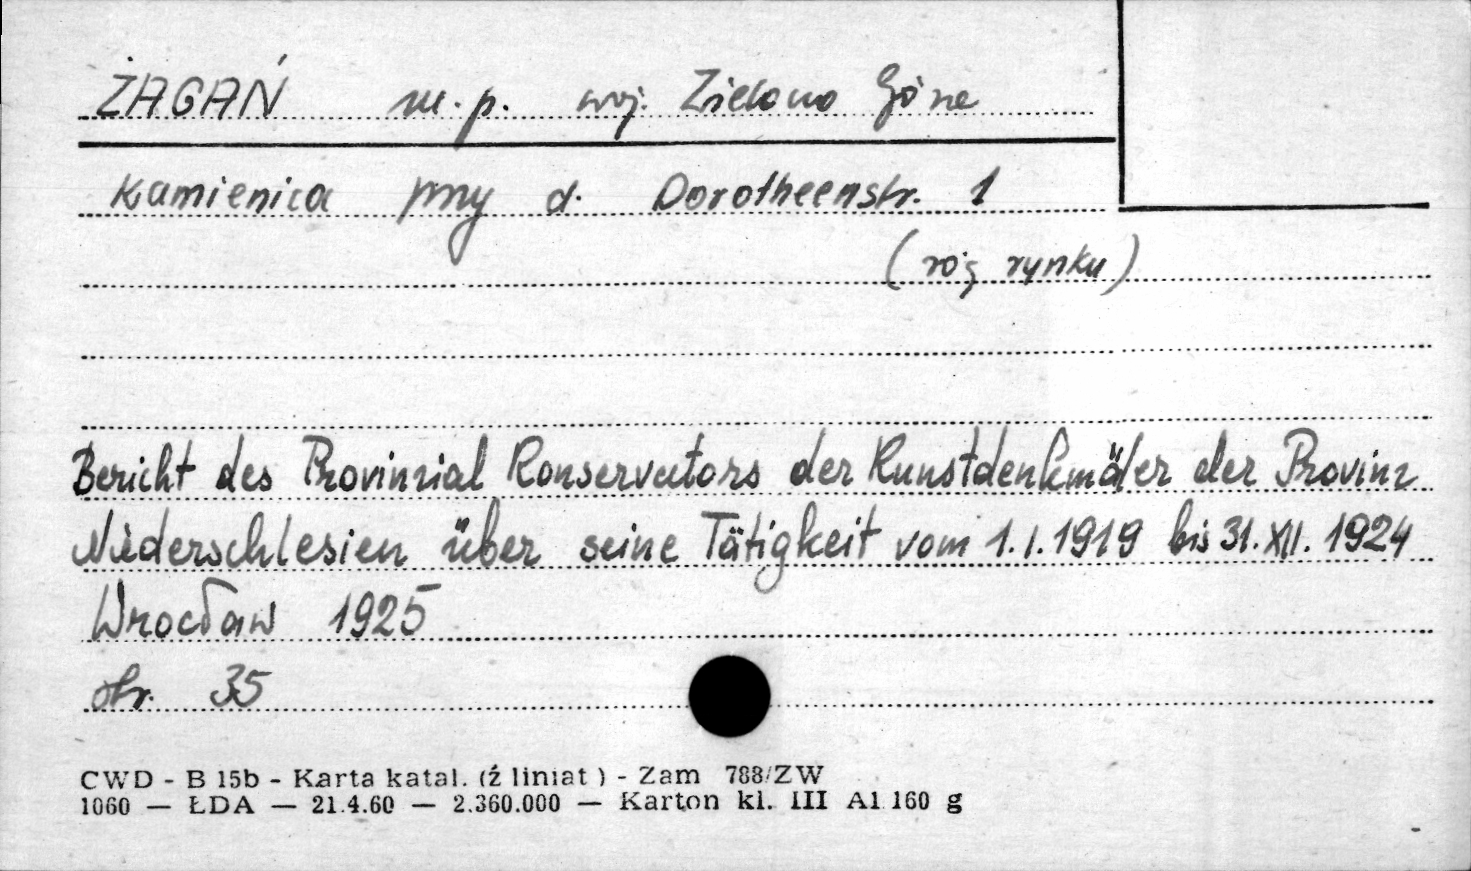 ŻAGAŃ m.p. woj. Zielona Góra
Kamienica przy d. Dorotheenstr. 1
(róg rynku)
Bericht des Provinzial Konservators der Kunstdenkmäler der Provinz
Niederschlesien über seine Tätigkeit vom 1.I.1919 bis 31.XII.1924
Wrocław 1925
str. 35
CWD - B 15b - Karta katal. (ź liniat) - Zam 788/ZW
1060 — ŁDA — 21.4.60 — 2.360.000 — Karton kl. III A1 160 g